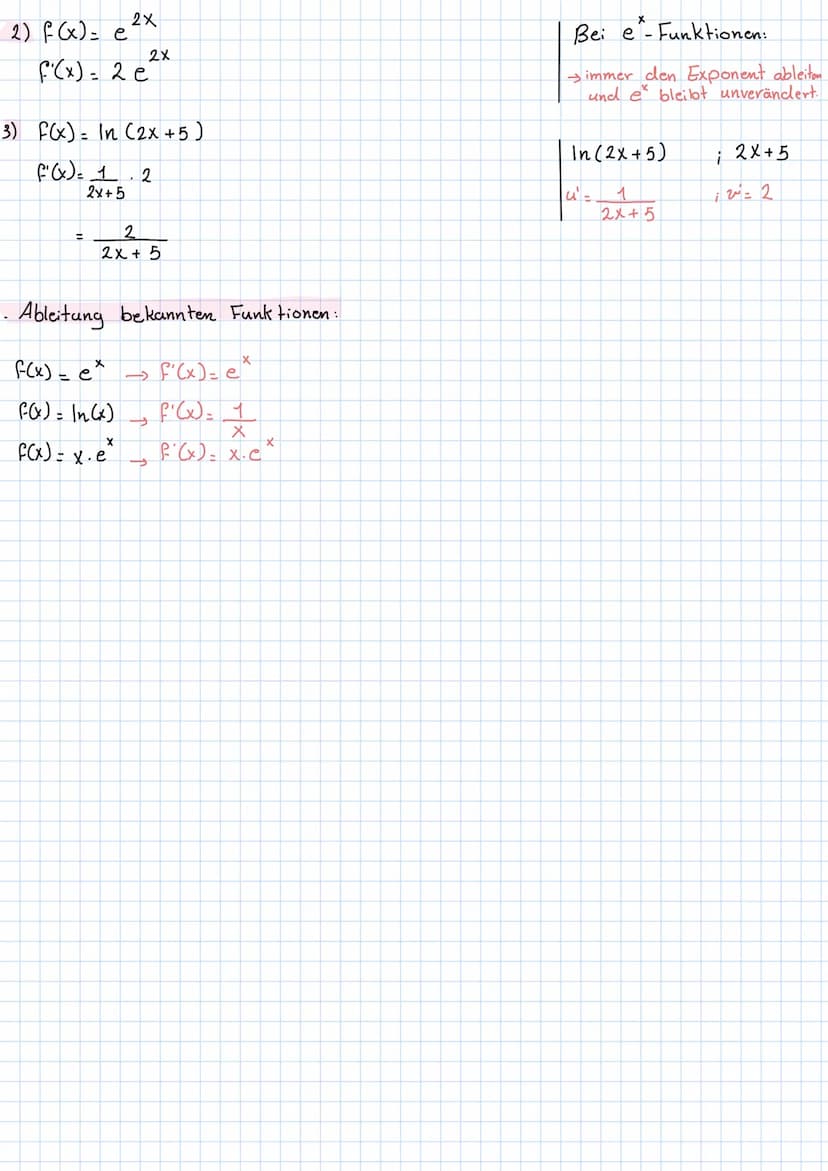 2) f(x) = e^2x
f'(x) = 2 e^2x
Bei e^x-Funktionen:
→ immer den Exponent ableiten
und e^x bleibt unverändert.
3) f(x) = ln (2x + 5)
f'(x) = 1/(2x+5) · 2
= 2/(2x + 5)
ln(2x + 5) ; 2x + 5
u' = 1/(2x + 5) ; v' = 2
. Ableitung bekannten Funktionen:
f(x) = e^x → f'(x) = e^x
f(x) = ln(x) → f'(x) = 1/x
f(x) = x · e^x → f'(x) = x · e^x